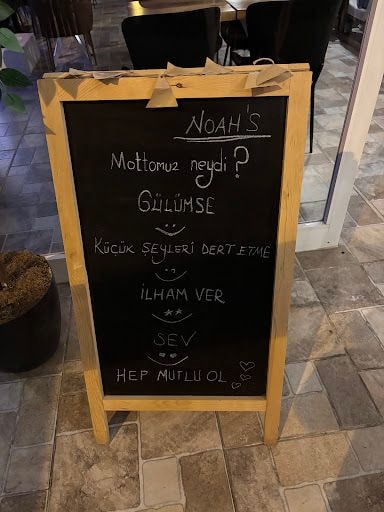 NOAH'S
Mottomuz neydi?
GÜLÜMSE
KÜÇÜK ŞEYLERİ DERT ETME
İLHAM VER
SEV
HEP MUTLU OL